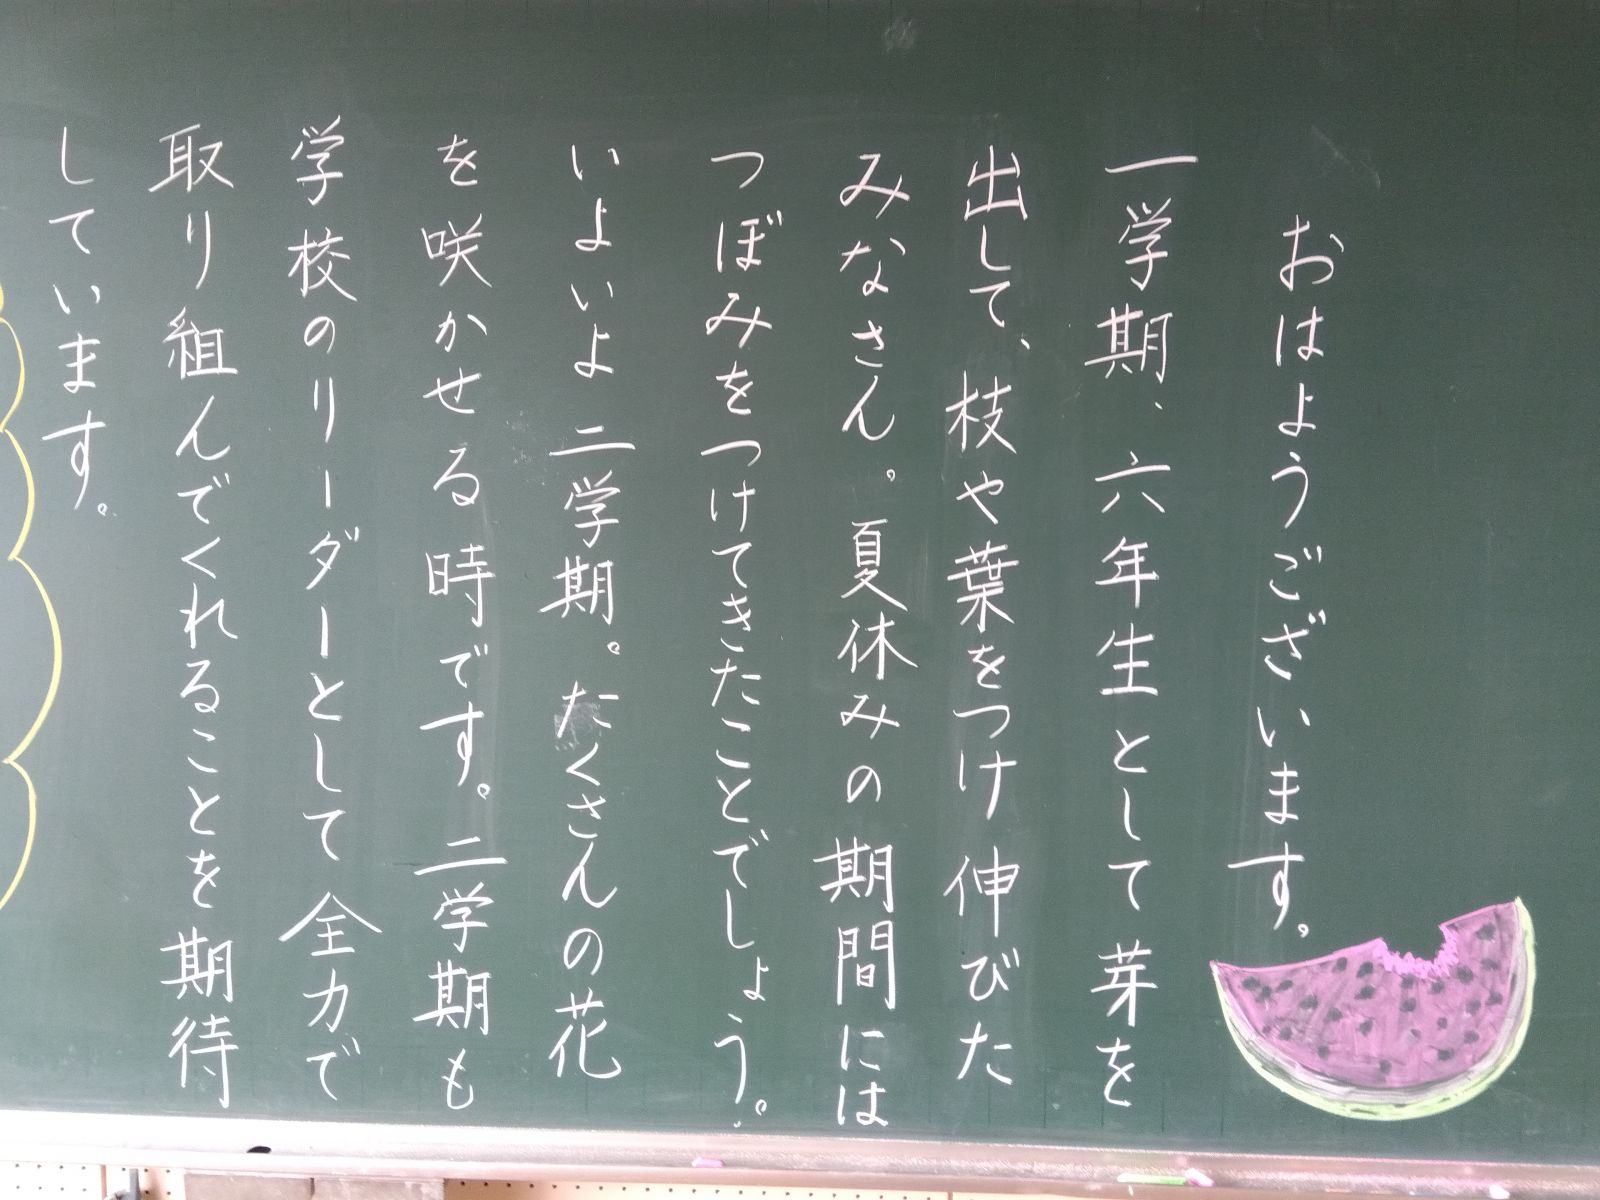 おはようございます。
一学期、六年生として芽を
出して、枝や葉をつけ伸びた
みなさん。夏休みの期間には
つぼみをつけてきたことでしょう。
いよいよ二学期。たくさんの花
を咲かせる時です。二学期も
学校のリーダーとして全力で
取り組んでくれることを期待
しています。